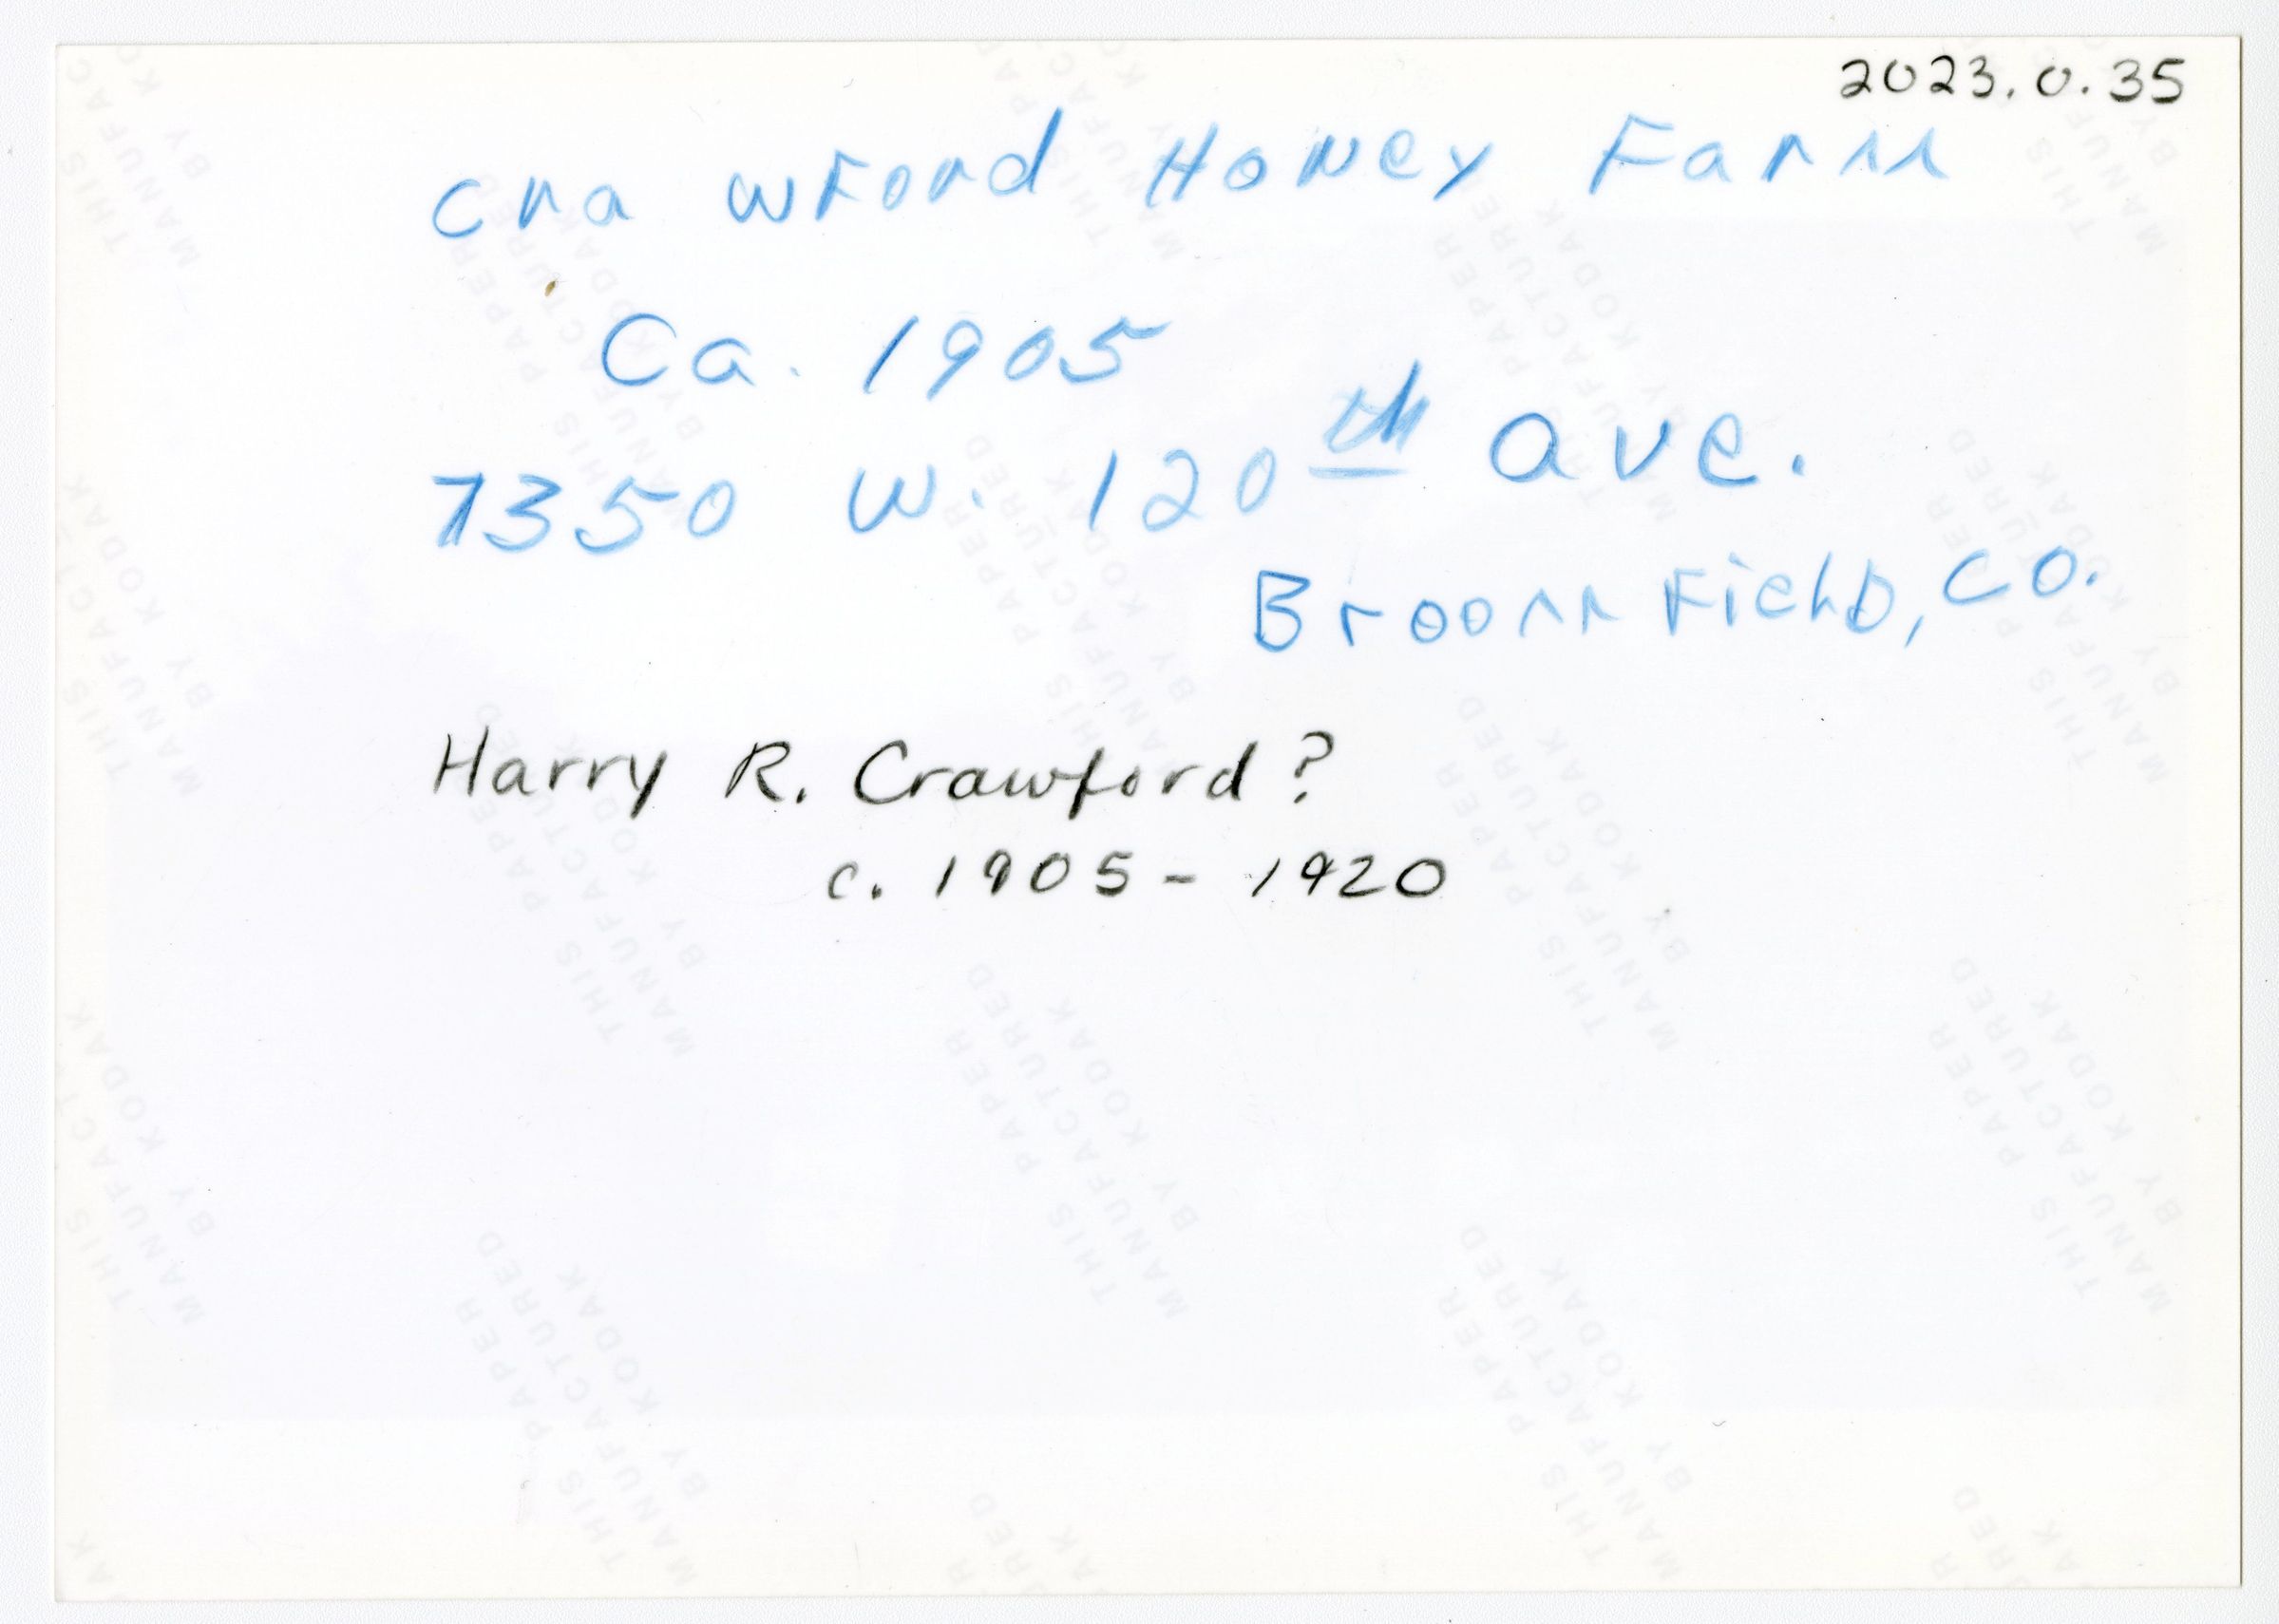 2023.0.35
Crawford Honey Farm
Ca. 1905
7350 W. 120th ave.
Broomfield, CO.
Harry R. Crawford?
c. 1905 - 1920
THIS PAPER
MANUFACTURED
BY KODAK